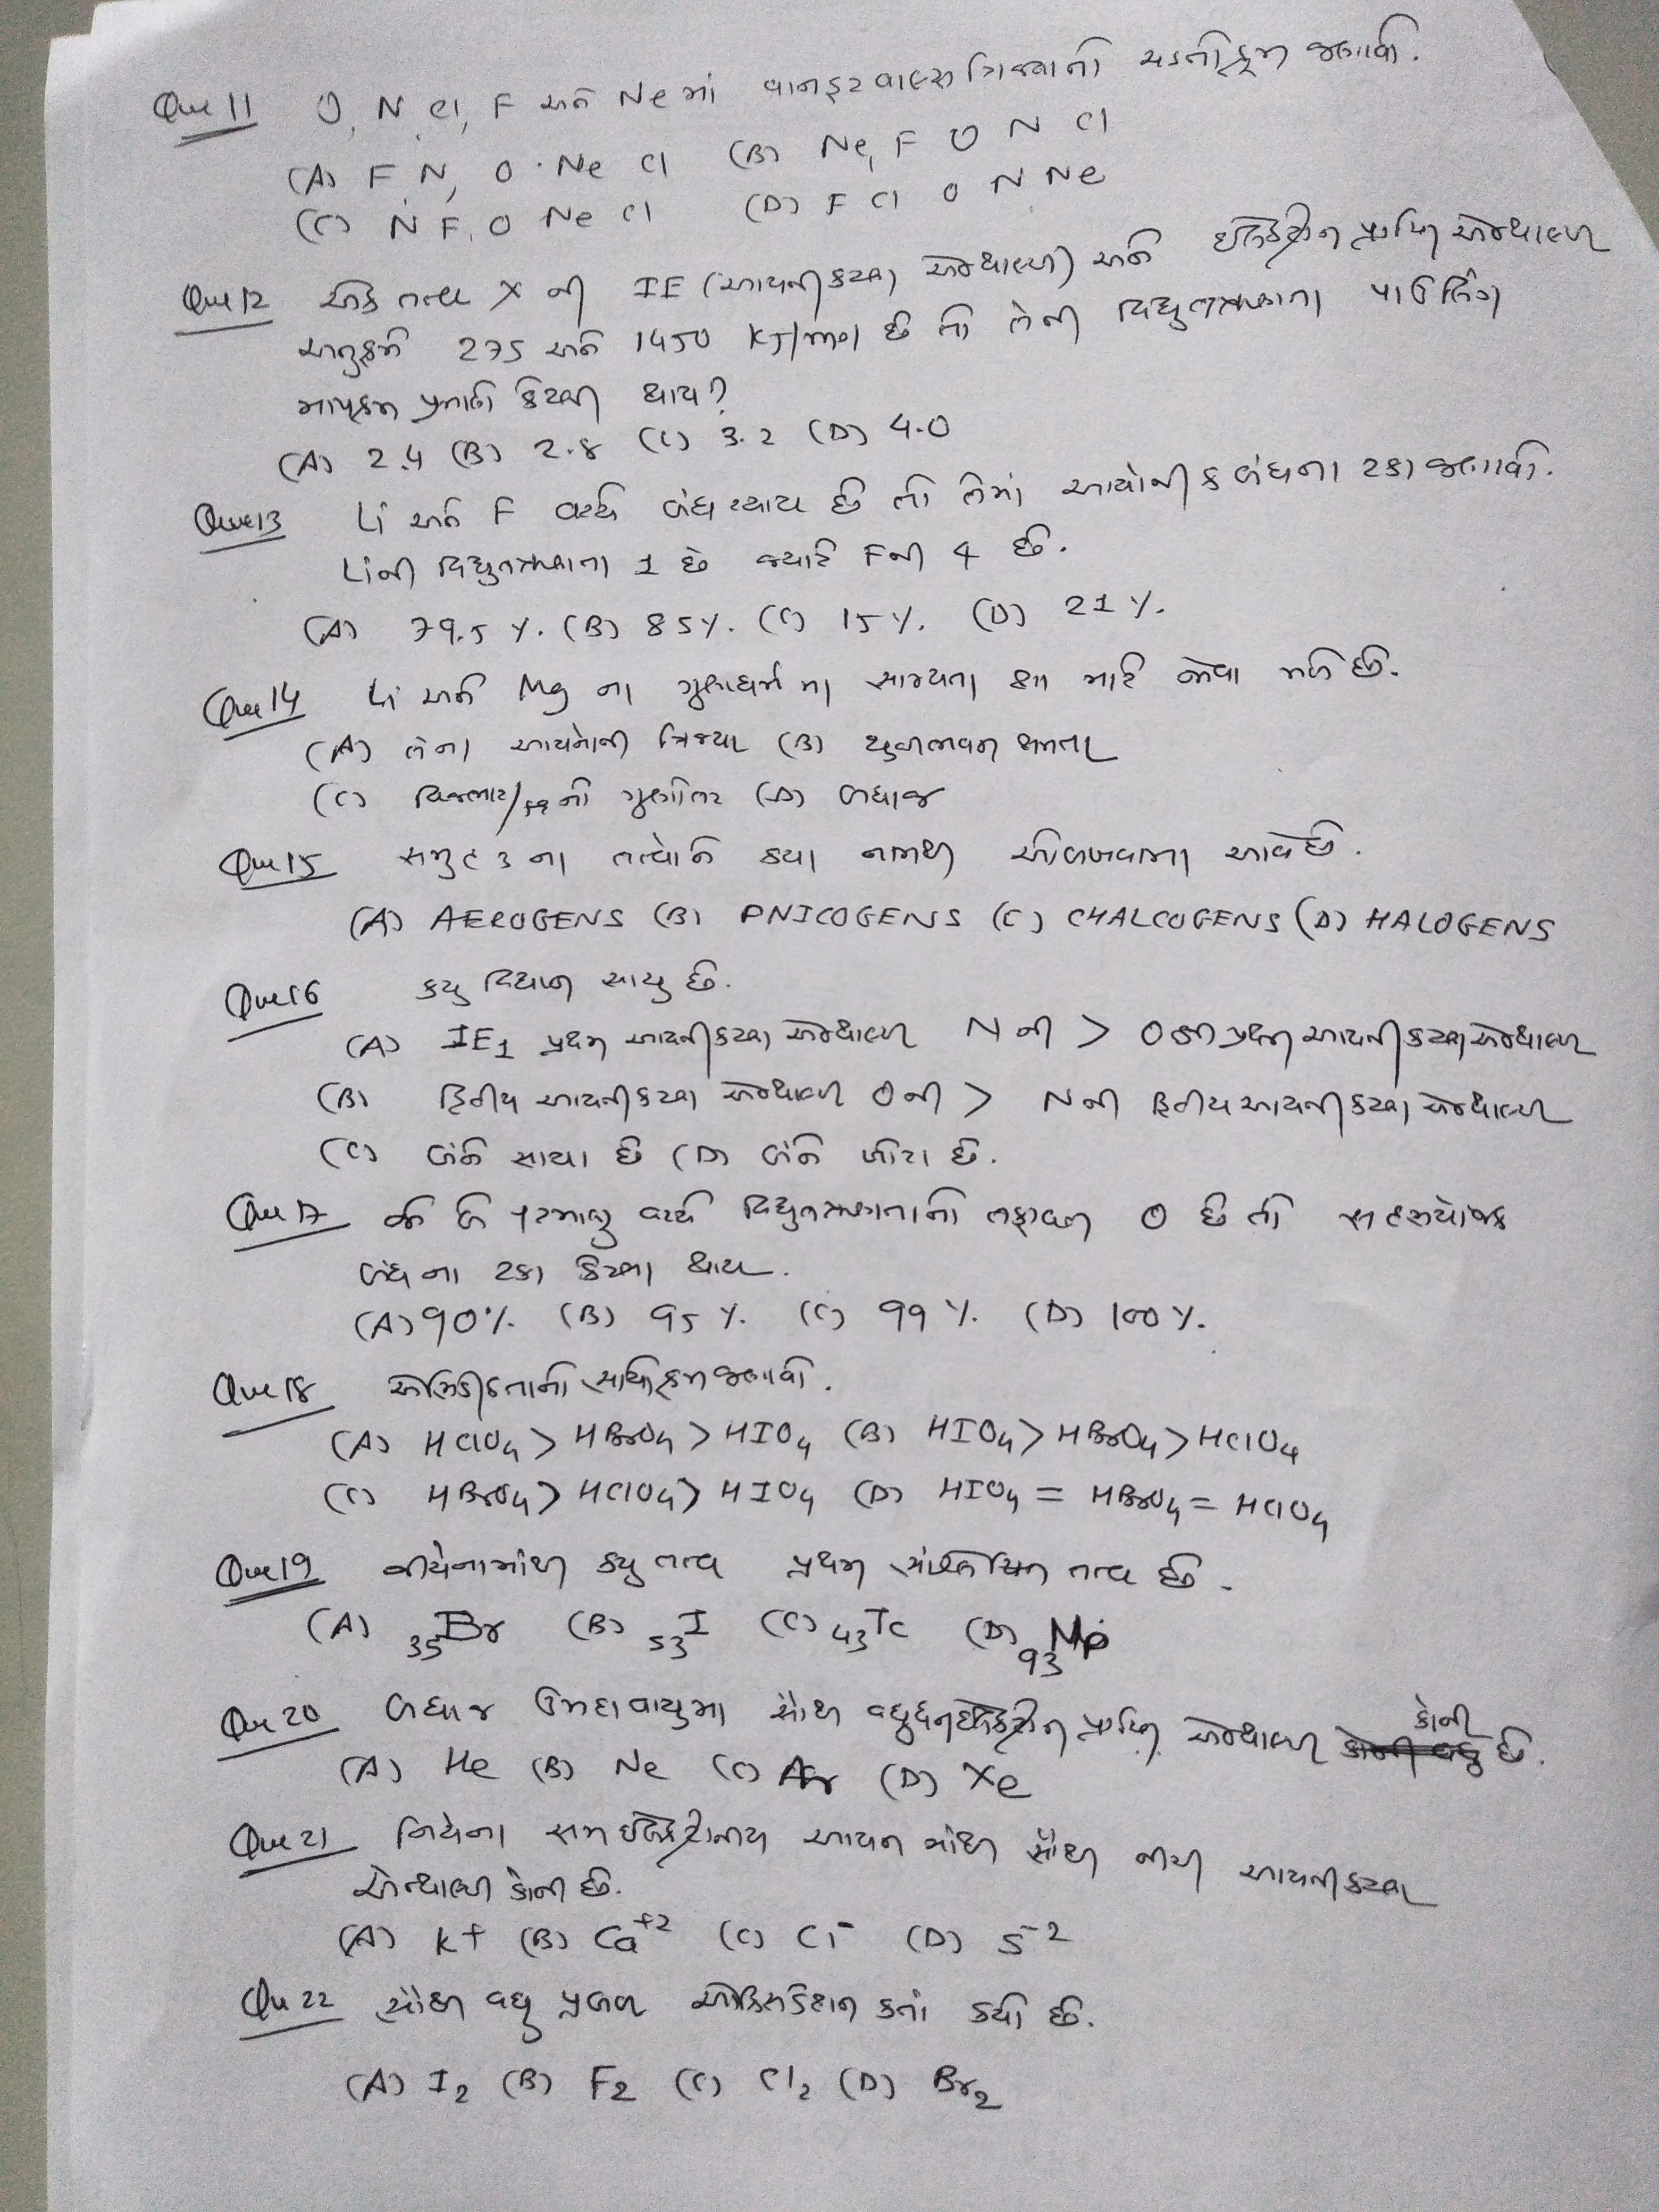 Que 11 O, N, Cl, F અને Ne માં વાનડરવાલ્સ ત્રિજ્યાનો ચડતોક્રમ જણાવો.
(A) F N, O . Ne Cl (B) Ne, F O N Cl
(C) N F, O Ne Cl (D) F Cl O N Ne
Que 12 એક તત્વ X ની IE (આયનીકરણ એન્થાલ્પી) અને ઇલેક્ટ્રોન પ્રાપ્તિ એન્થાલ્પી
અનુક્રમે 275 અને 1450 KJ/mol છે તો તેની વિદ્યુતઋણતા પાઉલિંગ
માપક્રમ પ્રમાણે કેટલી થાય?
(A) 2.4 (B) 2.8 (C) 3.2 (D) 4.0
Que 13 Li અને F વચ્ચે બંધ રચાય છે તો તેમાં આયોનીક બંધના ટકા જણાવો.
Li ની વિદ્યુતઋણતા 1 છે જ્યારે F ની 4 છે.
(A) 79.5 %. (B) 85%. (C) 15%. (D) 21%.
Que 14 Li અને Mg ના ગુણધર્મ મા સામ્યતા શા માટે જોવા મળે છે.
(A) તેના આયનોની ત્રિજ્યા (B) ધ્રુવીભવન ક્ષમતા
(C) વિજભાર/ નો ગુણોત્તર (D) બધાજ
Que 15 સમુહ ૩ ના તત્વોને કયા નામથી ઓળખવામા આવે છે.
(A) AEROGENS (B) PNICOGENS (C) CHALCOGENS (D) HALOGENS
Que 16 કયુ વિધાન સાચુ છે.
(A) IE1 પ્રથમ આયનીકરણ એન્થાલ્પી N ની > O ની પ્રથમ આયનીકરણ એન્થાલ્પી
(B) દ્વિતીય આયનીકરણ એન્થાલ્પી O ની > N ની દ્વિતીય આયનીકરણ એન્થાલ્પી
(C) બંને સાચા છે (D) બંને ખોટા છે.
Que 17 જો બે પરમાણુ વચ્ચે વિદ્યુતઋણતાનો તફાવત 0 છે તો સહસંયોજક
બંધ ના ટકા કેટલા થાય.
(A) 90%. (B) 95%. (C) 99%. (D) 100%.
Que 18 એસિડીકતાનો સાચોક્રમ જણાવો.
(A) HClO4 > HBrO4 > HIO4 (B) HIO4 > HBrO4 > HClO4
(C) HBrO4 > HClO4 > HIO4 (D) HIO4 = HBrO4 = HClO4
Que 19 નીચેનામાંથી કયુ તત્વ પ્રથમ સંશ્લેષિત તત્વ છે.
(A) 35Br (B) 53I (C) 43Tc (D) 93Np
Que 20 બધાજ ઉમદાવાયુમા સૌથી વધુ ધન ઇલેક્ટ્રોન પ્રાપ્તિ એન્થાલ્પી કોની છે.
(A) He (B) Ne (C) Ar (D) Xe
Que 21 નિચેના સમઇલેક્ટ્રોનીય આયન માંથી સૌથી નીચી આયનીકરણ
એન્થાલ્પી કોની છે.
(A) K+ (B) Ca+2 (C) Cl- (D) S-2
Qu 22 સૌથી વધુ પ્રબળ ઓક્સિડેશન કર્તા કયો છે.
(A) I2 (B) F2 (C) Cl2 (D) Br2